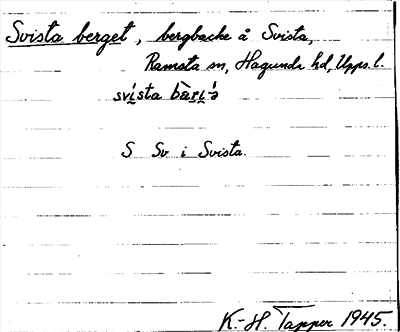 Svista berget, bergbacke å Svista,
Ramsta sn, Hagunda hd, Upps. l.
svista
S Sv i Svista.
K.-H. Tapper 1945.